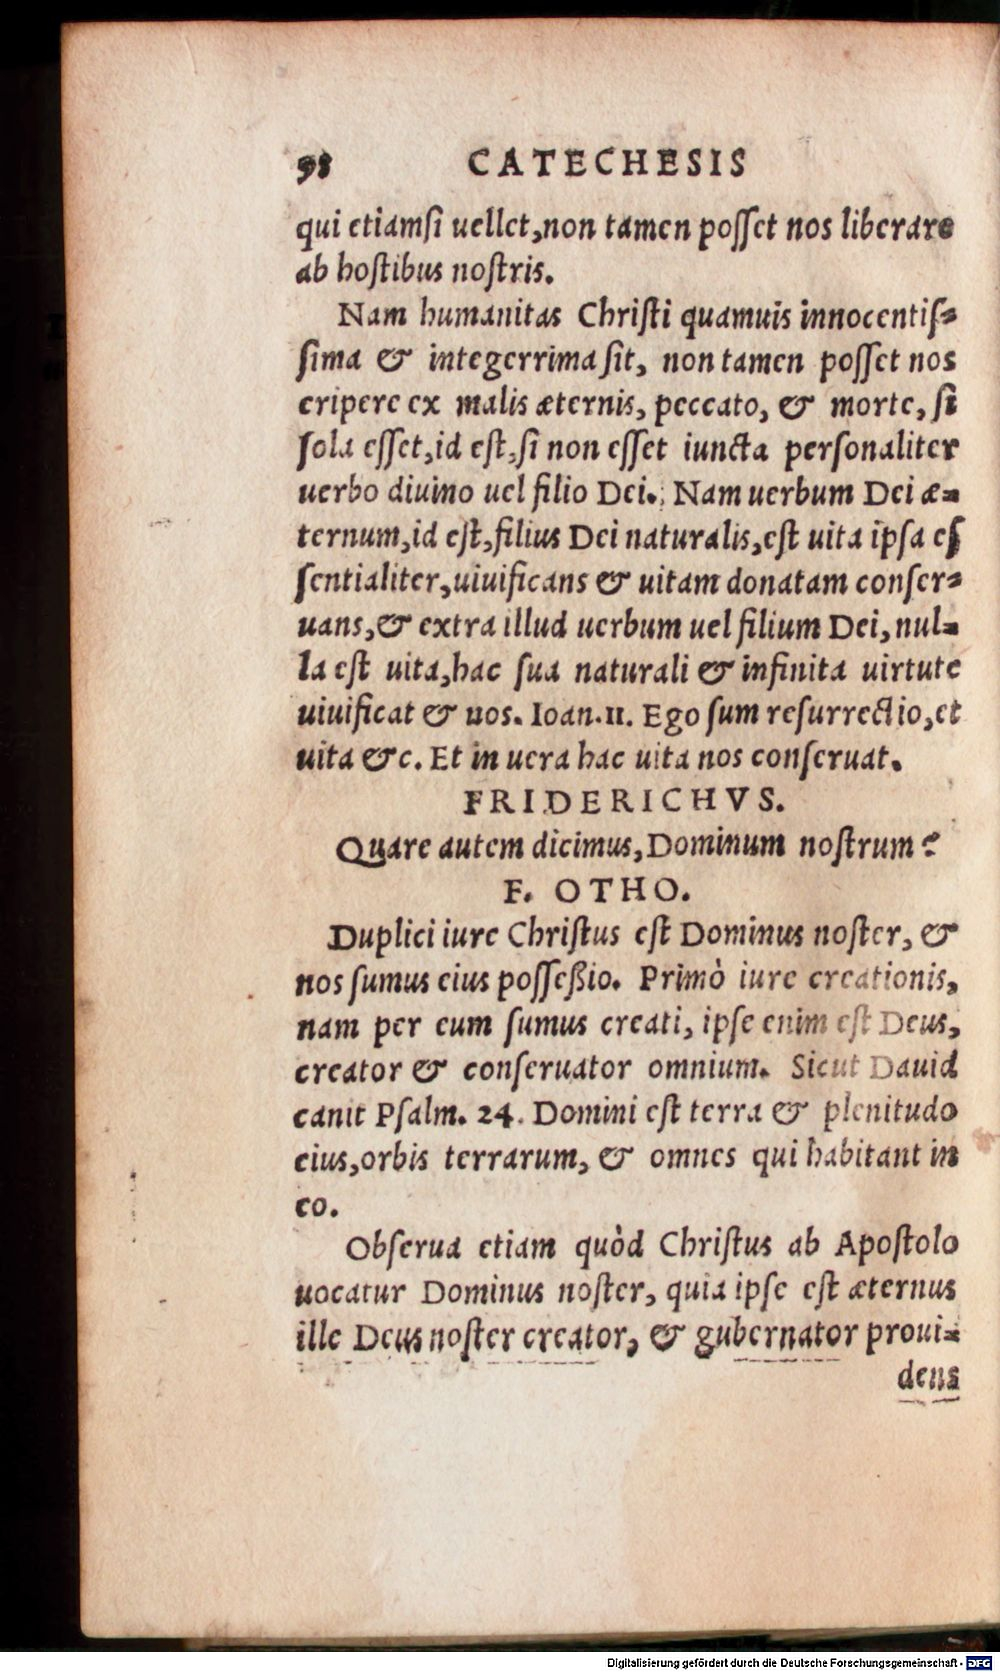 98 CATECHESIS
qui etiamſi uellet,non tamen poſſet nos liberare
ab hoſtibus noſtris.
Nam humanitas Chriſti quamuis innocentiſ-
ſima & integerrima ſit, non tamen poſſet nos
eripere ex malis æternis, peccato, & morte, ſi
ſola eſſet,id eſt,ſi non eſſet iuncta perſonaliter
uerbo diuino uel filio Dei. Nam uerbum Dei æ-
ternum,id eſt,filius Dei naturalis,eſt uita ipſa eſ
ſentialiter,uiuificans & uitam donatam conſer-
uans,& extra illud uerbum uel filium Dei, nul-
la eſt uita,hac ſua naturali & infinita uirtute
uiuificat & nos. Ioan.11. Ego ſum reſurrectio,et
uita &c. Et in uera hac uita nos conſeruat.
FRIDERICHVS.
Quare autem dicimus,Dominum noſtrum?
F. OTHO.
Duplici iure Chriſtus eſt Dominus noſter, &
nos ſumus eius poſſeßio. Primò iure creationis,
nam per eum ſumus creati, ipſe enim eſt Deus,
creator & conſeruator omnium. Sicut Dauid
canit Pſalm. 24. Domini eſt terra & plenitudo
eius,orbis terrarum, & omnes qui habitant in
eo.
Obſerua etiam quòd Chriſtus ab Apoſtolo
uocatur Dominus noſter, quia ipſe eſt æternus
ille Deus noſter creator, & gubernator proui-
dens
Digitalisierung gefördert durch die Deutsche Forschungsgemeinschaft - DFG